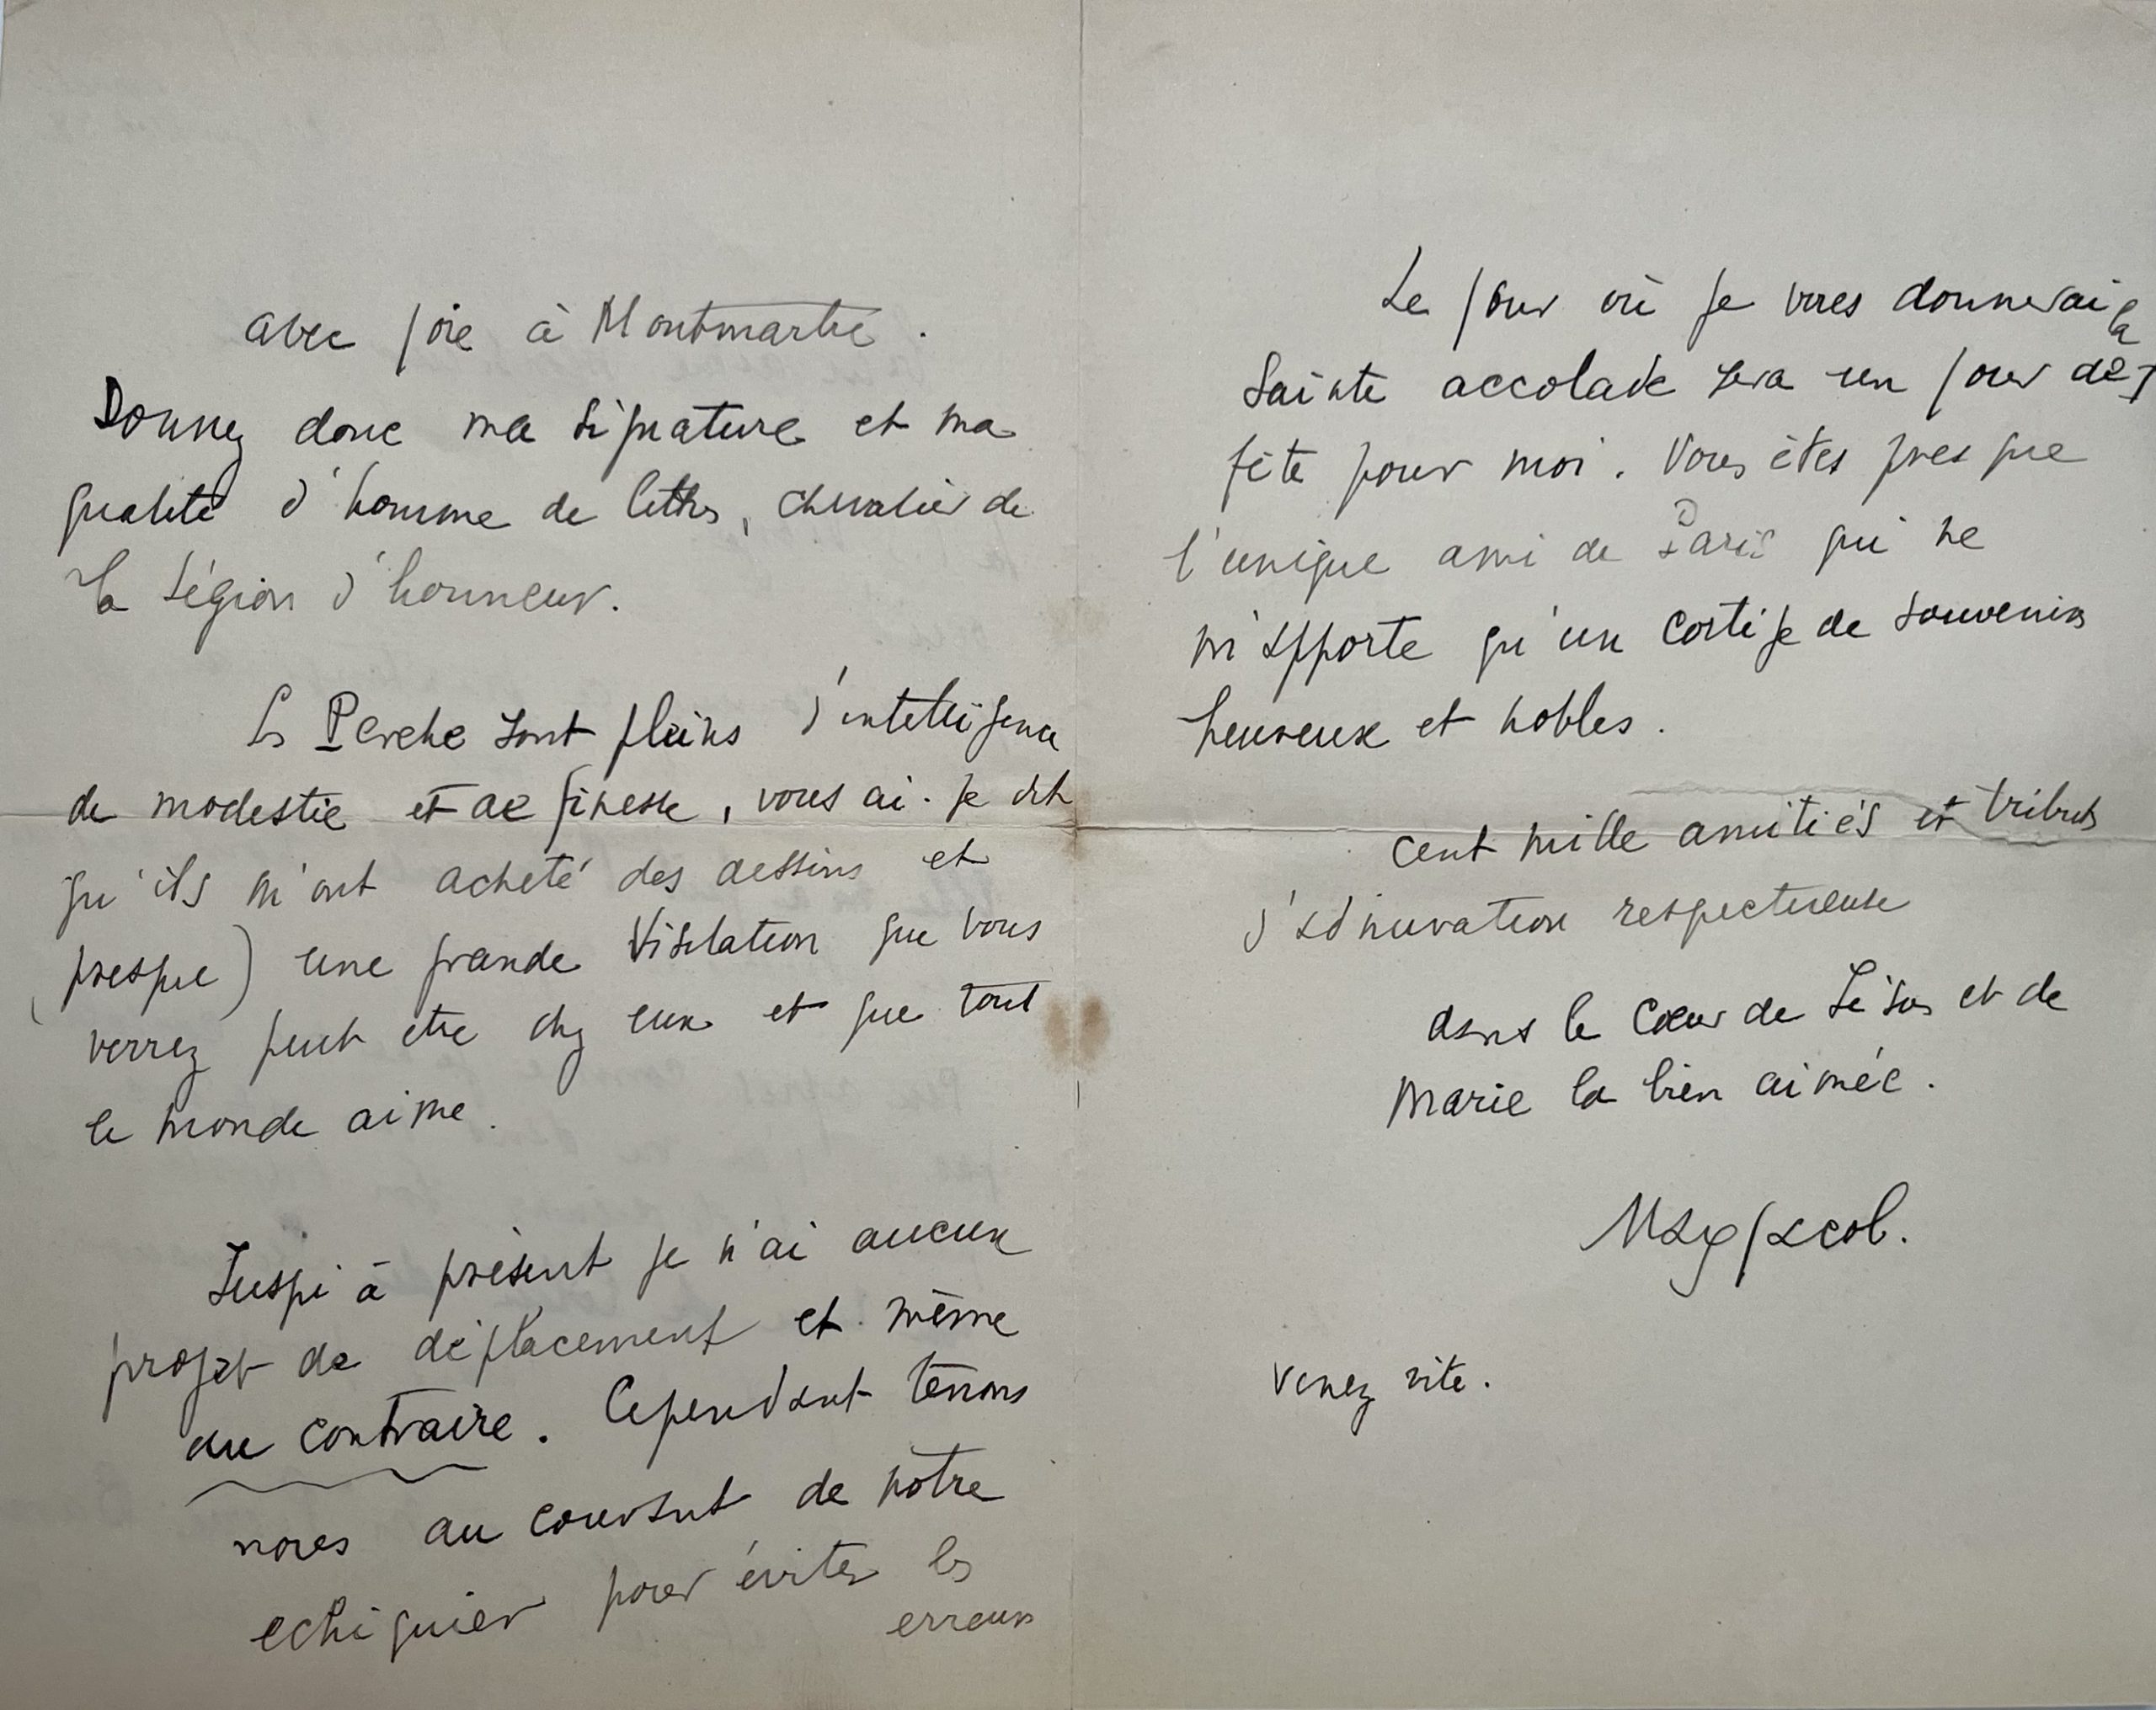 avec joie à Montmartre.
Donnez donc ma signature et ma
qualité d'homme de lettres, chevalier de
la Légion d'honneur.
Les Perche sont pleins d'intelligence
de modestie et de finesse, vous ai-je dit
qu'ils m'ont acheté des dessins et
(presque) une grande Visitation que vous
verrez peut etre chez eux et que tout
le monde aime.
Jusqu'à présent je n'ai aucun
projet de déplacement et même
au contraire. Cependant tenons
nous au courant de notre
echiquier pour éviter les
erreurs
Le jour où je vous donnerai la
Sainte accolade sera un jour de
fête pour moi. Vous êtes presque
l'unique ami de Paris qui ne
m'apporte qu'un cortège de souvenirs
heureux et nobles.
Cent mille amitiés et tributs
d'admiration respectueuse
dans le Cœur de Jésus et de
Marie la bien aimée.
Max Jacob.
Venez vite.